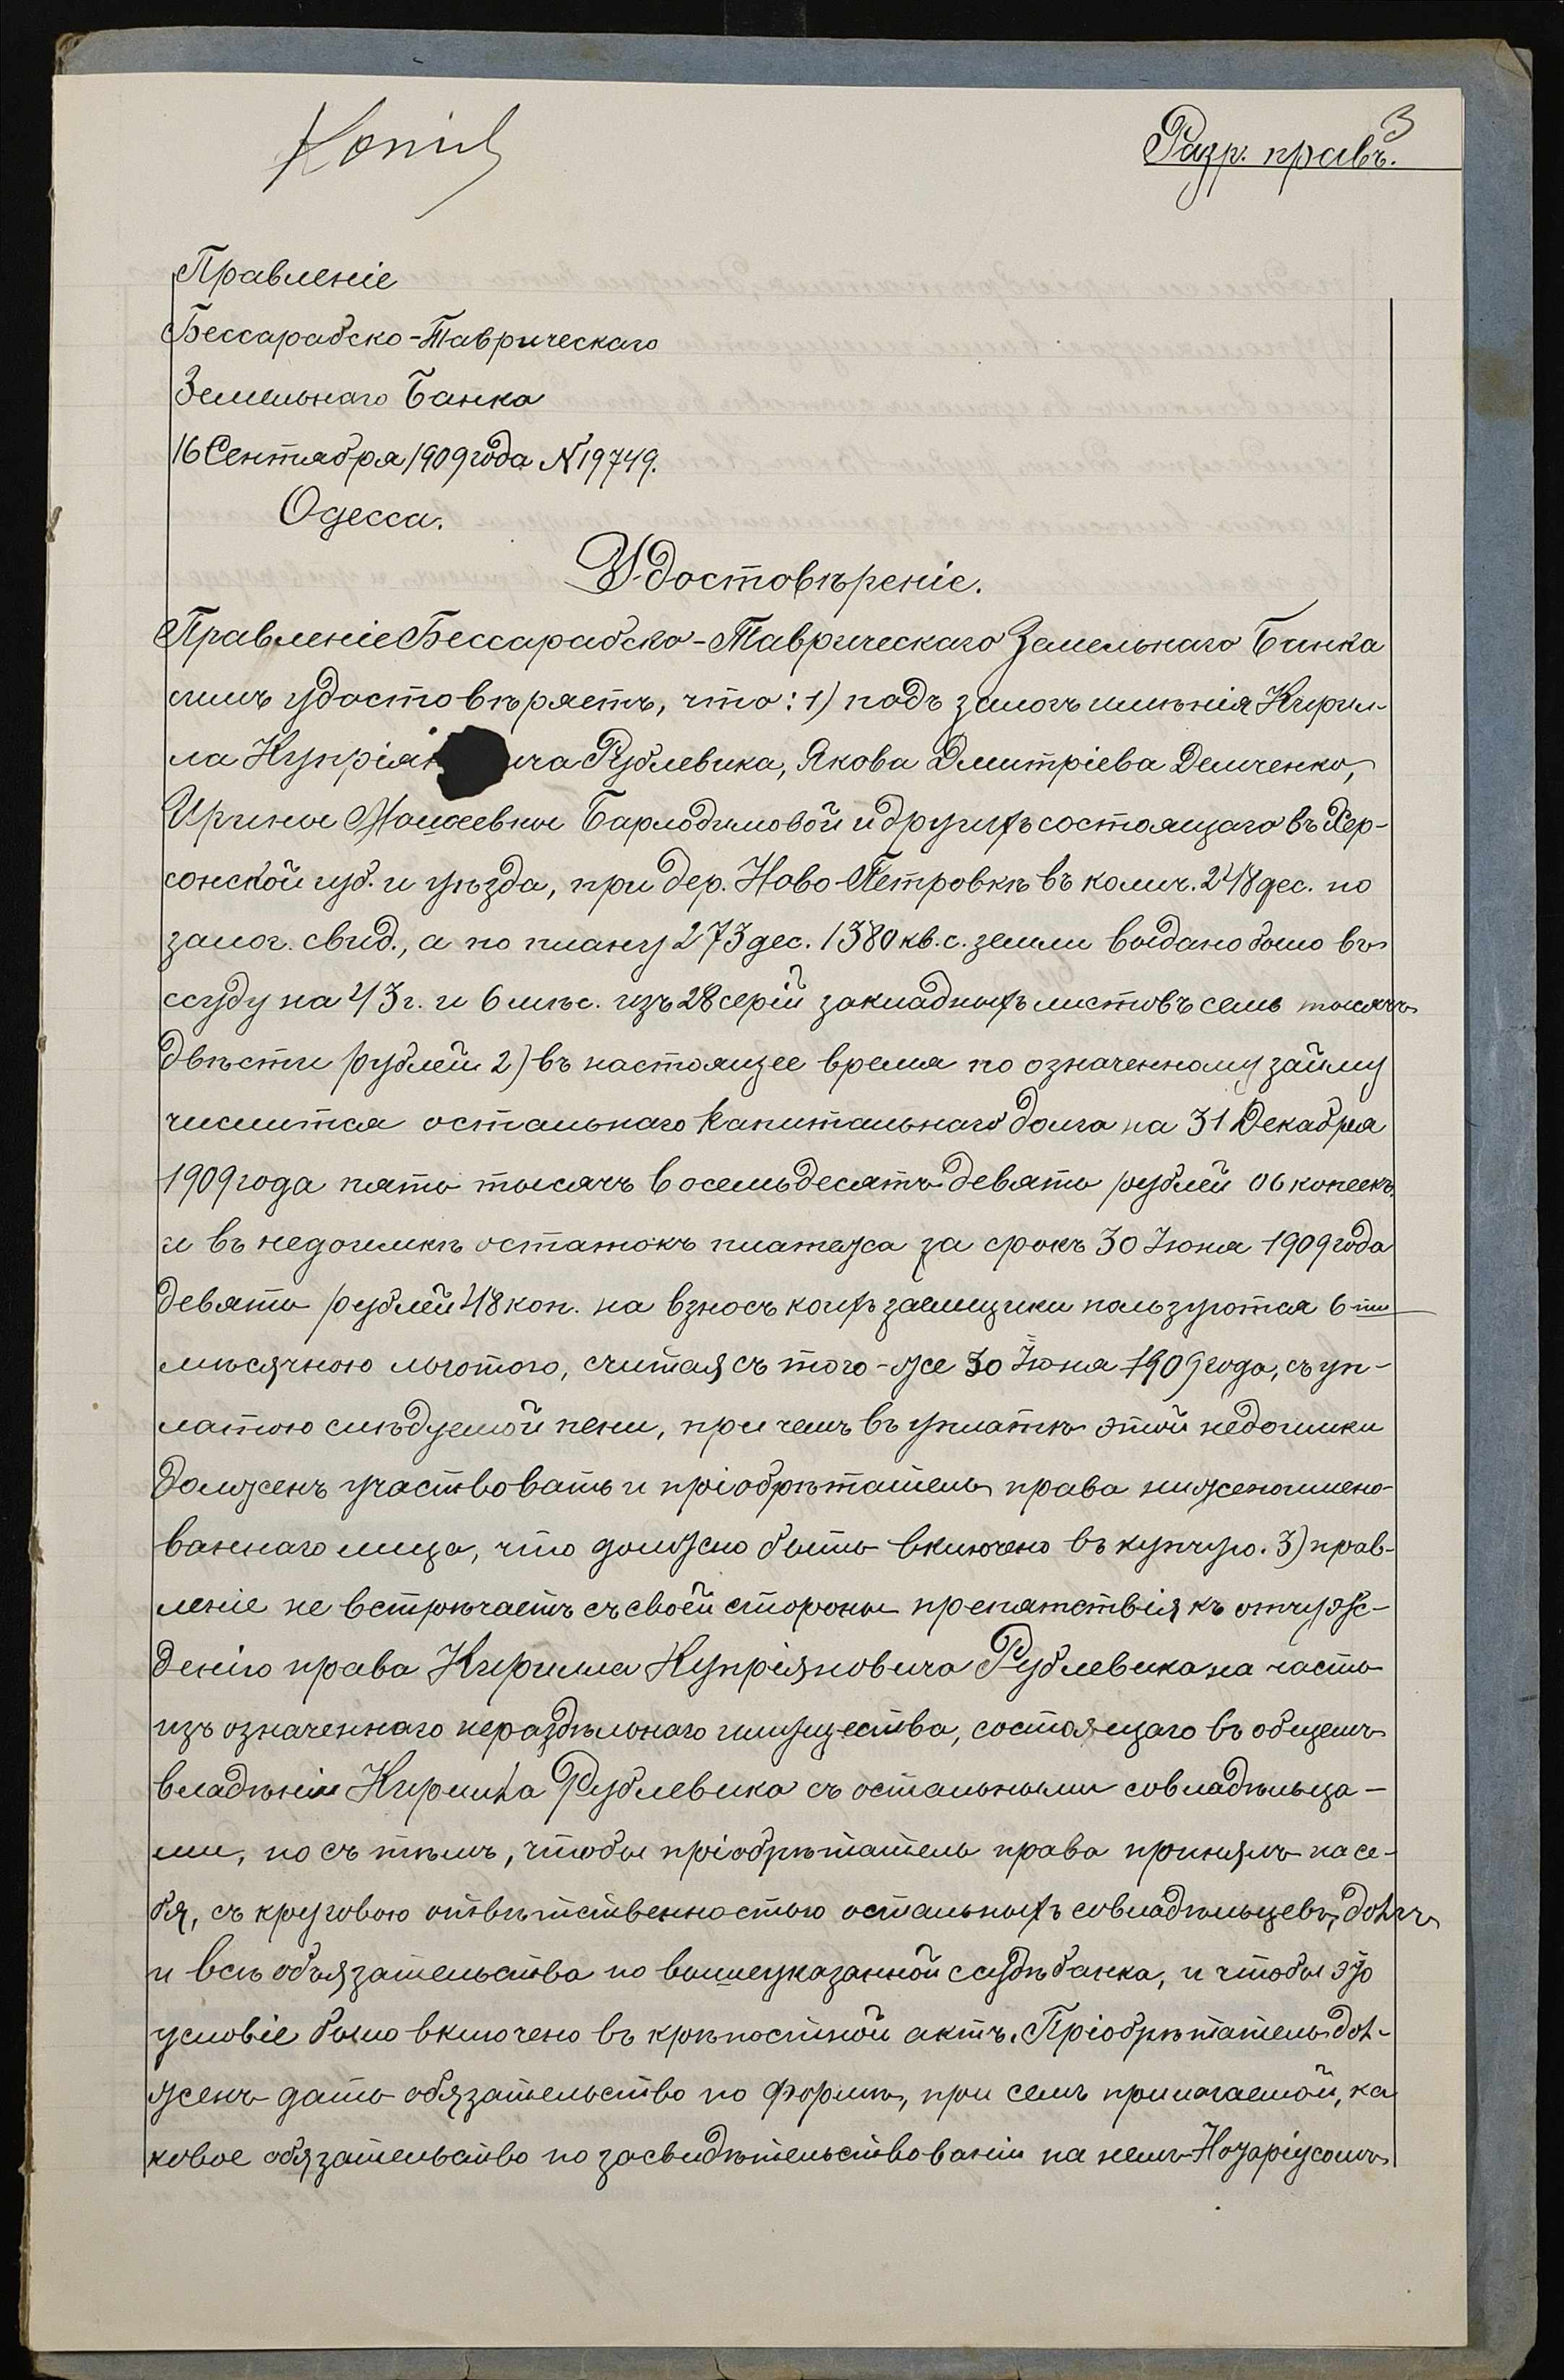 Копія
3
Разр. правъ.
Правленіе
Бессарабско-Таврическаго
Земельнаго Банка
16 Сентября 1909 года № 19749.
Одесса.
Удостовѣреніе.
Правленіе Бессарабско-Таврическаго Земельнаго Банка
симъ удостовѣряетъ, что: 1) подъ залогъ имѣнія Кирил-
ла Купріян ича Рублевика, Якова Дмитріева Демченко,
Ирины Моисеевны и другихъ состоящаго въ Хер-
сонской губ. и уѣзда, при дер. Ново-Петровкѣ въ колич. 248 дес. по
залог. свид., а по плану 273 дес. 1380 кв. с. земли выдано было въ
ссуду на 43 г. и 6 мѣс. изъ 28 серій закладныхъ листовъ семь тысячъ
двѣсти рублей 2) въ настоящее время по означенному займу
числится остальнаго капитальнаго долга на 31 Декабря
1909 года пять тысячъ восемьдесятъ девять рублей 06 копеекъ
и въ недоимкѣ остатокъ платежа за срокъ 30 Іюня 1909 года
девять рублей 48 коп. на взносъ коихъ заемщики пользуются 6-ти
мѣсячною льготою, считая съ того-же 30 Іюня 1909 года, съ уп-
латою слѣдуемой пени, при чемъ въ уплатѣ этой недоимки
долженъ участвовать и пріобрѣтатель права нижепоимено-
ваннаго лица, что должно быть включено въ купчую. 3) прав-
леніе не встрѣчаетъ съ своей стороны препятствія къ отчуж-
денію права Кирилла Купріяновича Рублевика на часть
изъ означеннаго нераздѣльнаго имущества, состоящаго въ общемъ
владѣніи Кирилла Рублевика съ остальными совладѣльца-
ми, но съ тѣмъ, чтобы пріобрѣтатель права принялъ на се-
бя, съ круговою отвѣтственностью остальныхъ совладѣльцевъ, долгъ
и всѣ обязательства по вышеуказанной ссудѣ банка, и чтобы это
условіе было включено въ крѣпостной актъ. Пріобрѣтатель дол-
женъ дать обязательство по формѣ, при семъ прилагаемой, ка
ковое обязательство по засвидѣтельствованіи на немъ Нотаріусомъ